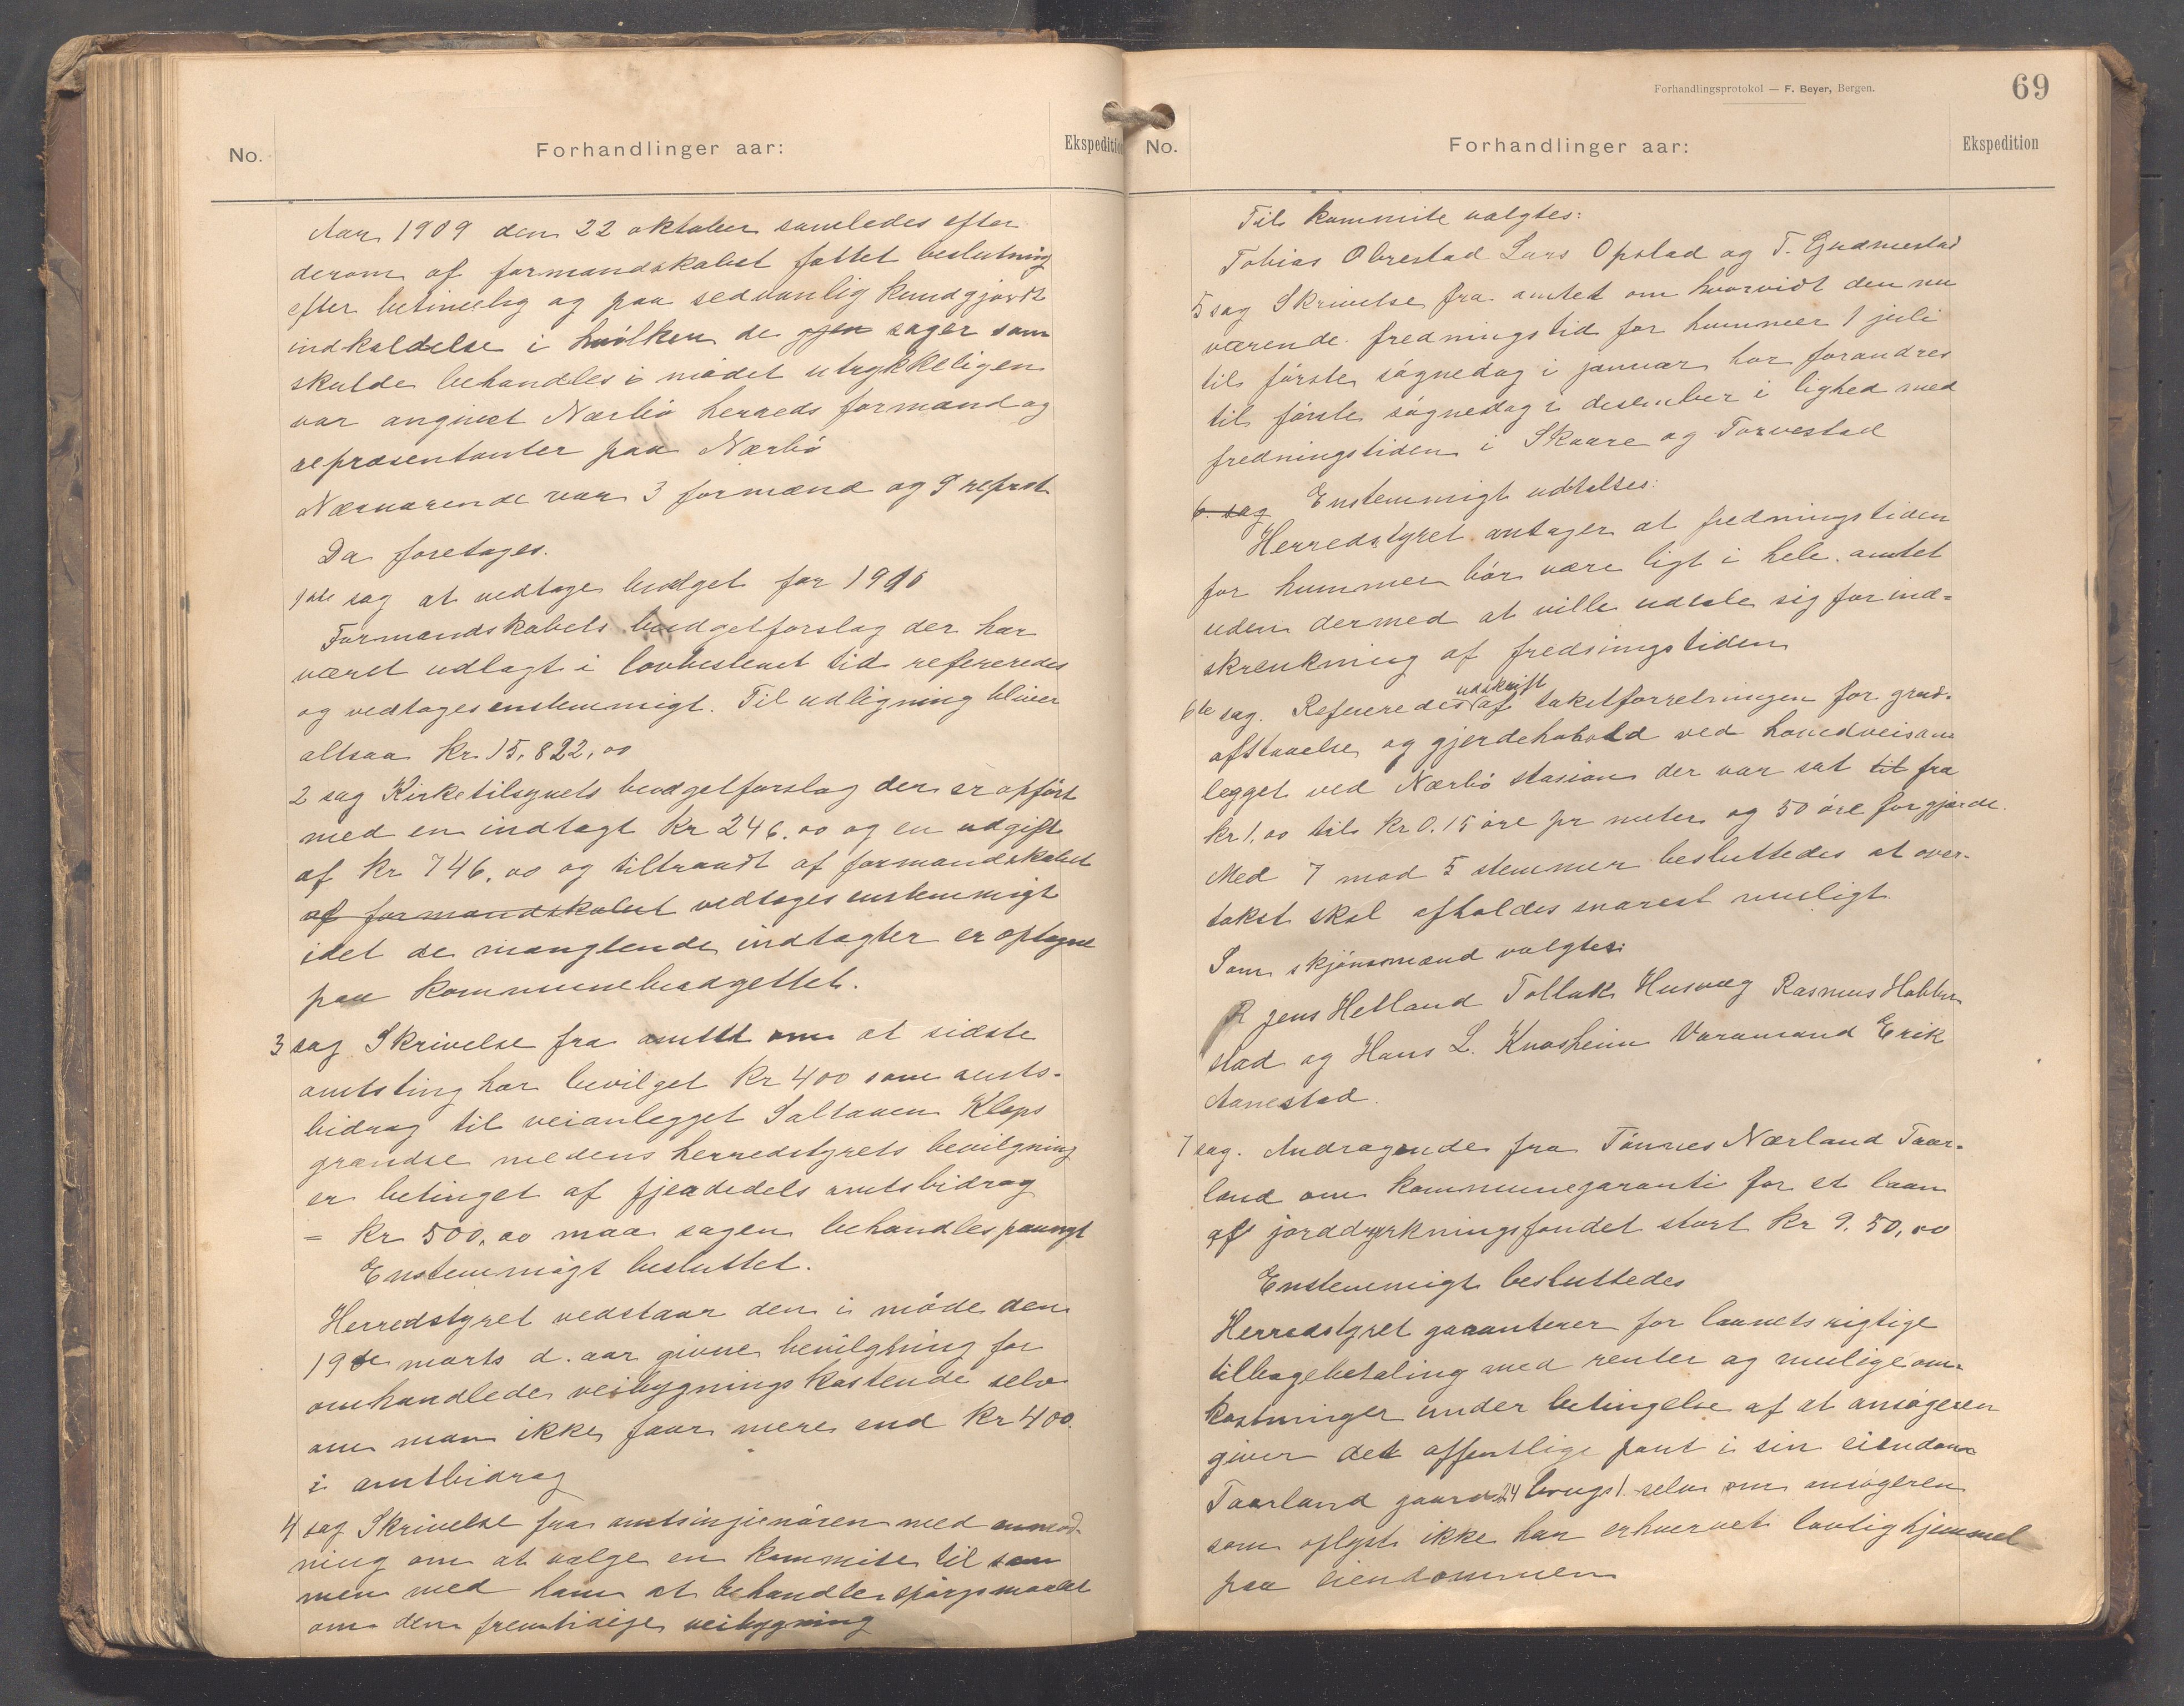 No.
Forhandlinger aar:
Ekspedition
Aar 1909 den 22 oktober samledes efter
derom af formandskabet fattet beslutning
efter betimelig og paa sedvanlig kundgjordt
indkaldelse i hvilken de gjen sager som
skulde behandles i mödet utrykkeligen
var angivet Nærbö herreds formænd og
repræsentanter paa Nærbö
Nærværende var 3 formænd og 9 reprst
Da foretages.
1ste sag at vedtage budget for 1910
Formandskabets budgetforslag der har
været udlagt i lovbestemt tid refereredes
og vedtages enstemmigt. Til udligning bliver
altsaa kr. 15,822,00
2 sag Kirketilsynets budgetforslag der er opfört
med en indtægt kr 246,00 og en udgift
af kr 746,00 og tiltraadt af formandskabet
af formandskabet vedtages enstemmigt
idet de manglende indtægter er optagne
paa kommunebudgettet.
3 sag Skrivelse fra amtet om at sidste
amtsting har bevilget kr 400 som amts-
bidrag til veianlegget Saltaaen Kleps
grændse medens herredstyrets bevilgning
er betinget af fjerdedels amtsbidrag
= kr 500,00 maa sagen behandles paanyt
Enstemmigt besluttet.
Herredstyret vedstaar den i möde den
19de marts d. aar givne bevilgning for
omhandlede veibygnings kostende selv
om man ikke faar mere end kr 400
i amtbidrag
4 sag Skrivelse fra amtsingienören med anmod-
ning om at vælge en kommite til sam
men med ham at behandle spörgsmaalet
om den fremtidige veibygning
Forhandlingsprotokol — F. Beyer, Bergen.
69
No.
Forhandlinger aar:
Ekspedition
Til kommite valgtes:
Tobias Obrestad Lars Opstad og T. Gudmestad
5 sag Skrivelse fra amtet om hvorvidt den nu
værende fredningstid for hummer 1 juli
til förste sögnedag i januar bör forandres
til förste sögnedag i desember i lighed med
fredningstiden i Skaare og Torvestad
6. sag Enstemmigt udtaltes:
Herredstyret antager at fredningstiden
for hummer bör være ligt i hele amtet
uden dermed at ville udtale sig for ind-
skrenkning af fredningstiden
udskrift
6te sag. Refereredes af takstforretningen for grund-
afstaaelse og gjerdehold ved hovedveisan
legget ved Nærbö stasion der var sat til fra
kr 1,00 til kr 0,15 öre pr meter og 50 öre for gjerde.
Med 7 mod 5 stemmer besluttedes at over-
takst skal afholdes snarest muligt
Som skjönsmænd valgtes:
Jens Hetland Tollak Husvæg Rasmus Habber
stad og Hans L. Kvasheim Varamand Erik
Aanestad.
7 sag. Andragende fra Tönnes Nærland Taar-
land om kommunegaranti for et laan
af jorddyrkningsfondet stort kr 9.50,00
Enstemmigt besluttedes
Herredstyret garanterer for laanets rigtige
tilbagebetaling med renter og mulige om-
kostninger under betingelse af at ansögeren
giver det offentlige pant i sin eiendom
Taarland gaards 24 brugs 1. selv om ansögeren
som oplyst ikke har erhvervet lovlig hjemmel
paa eiendommen